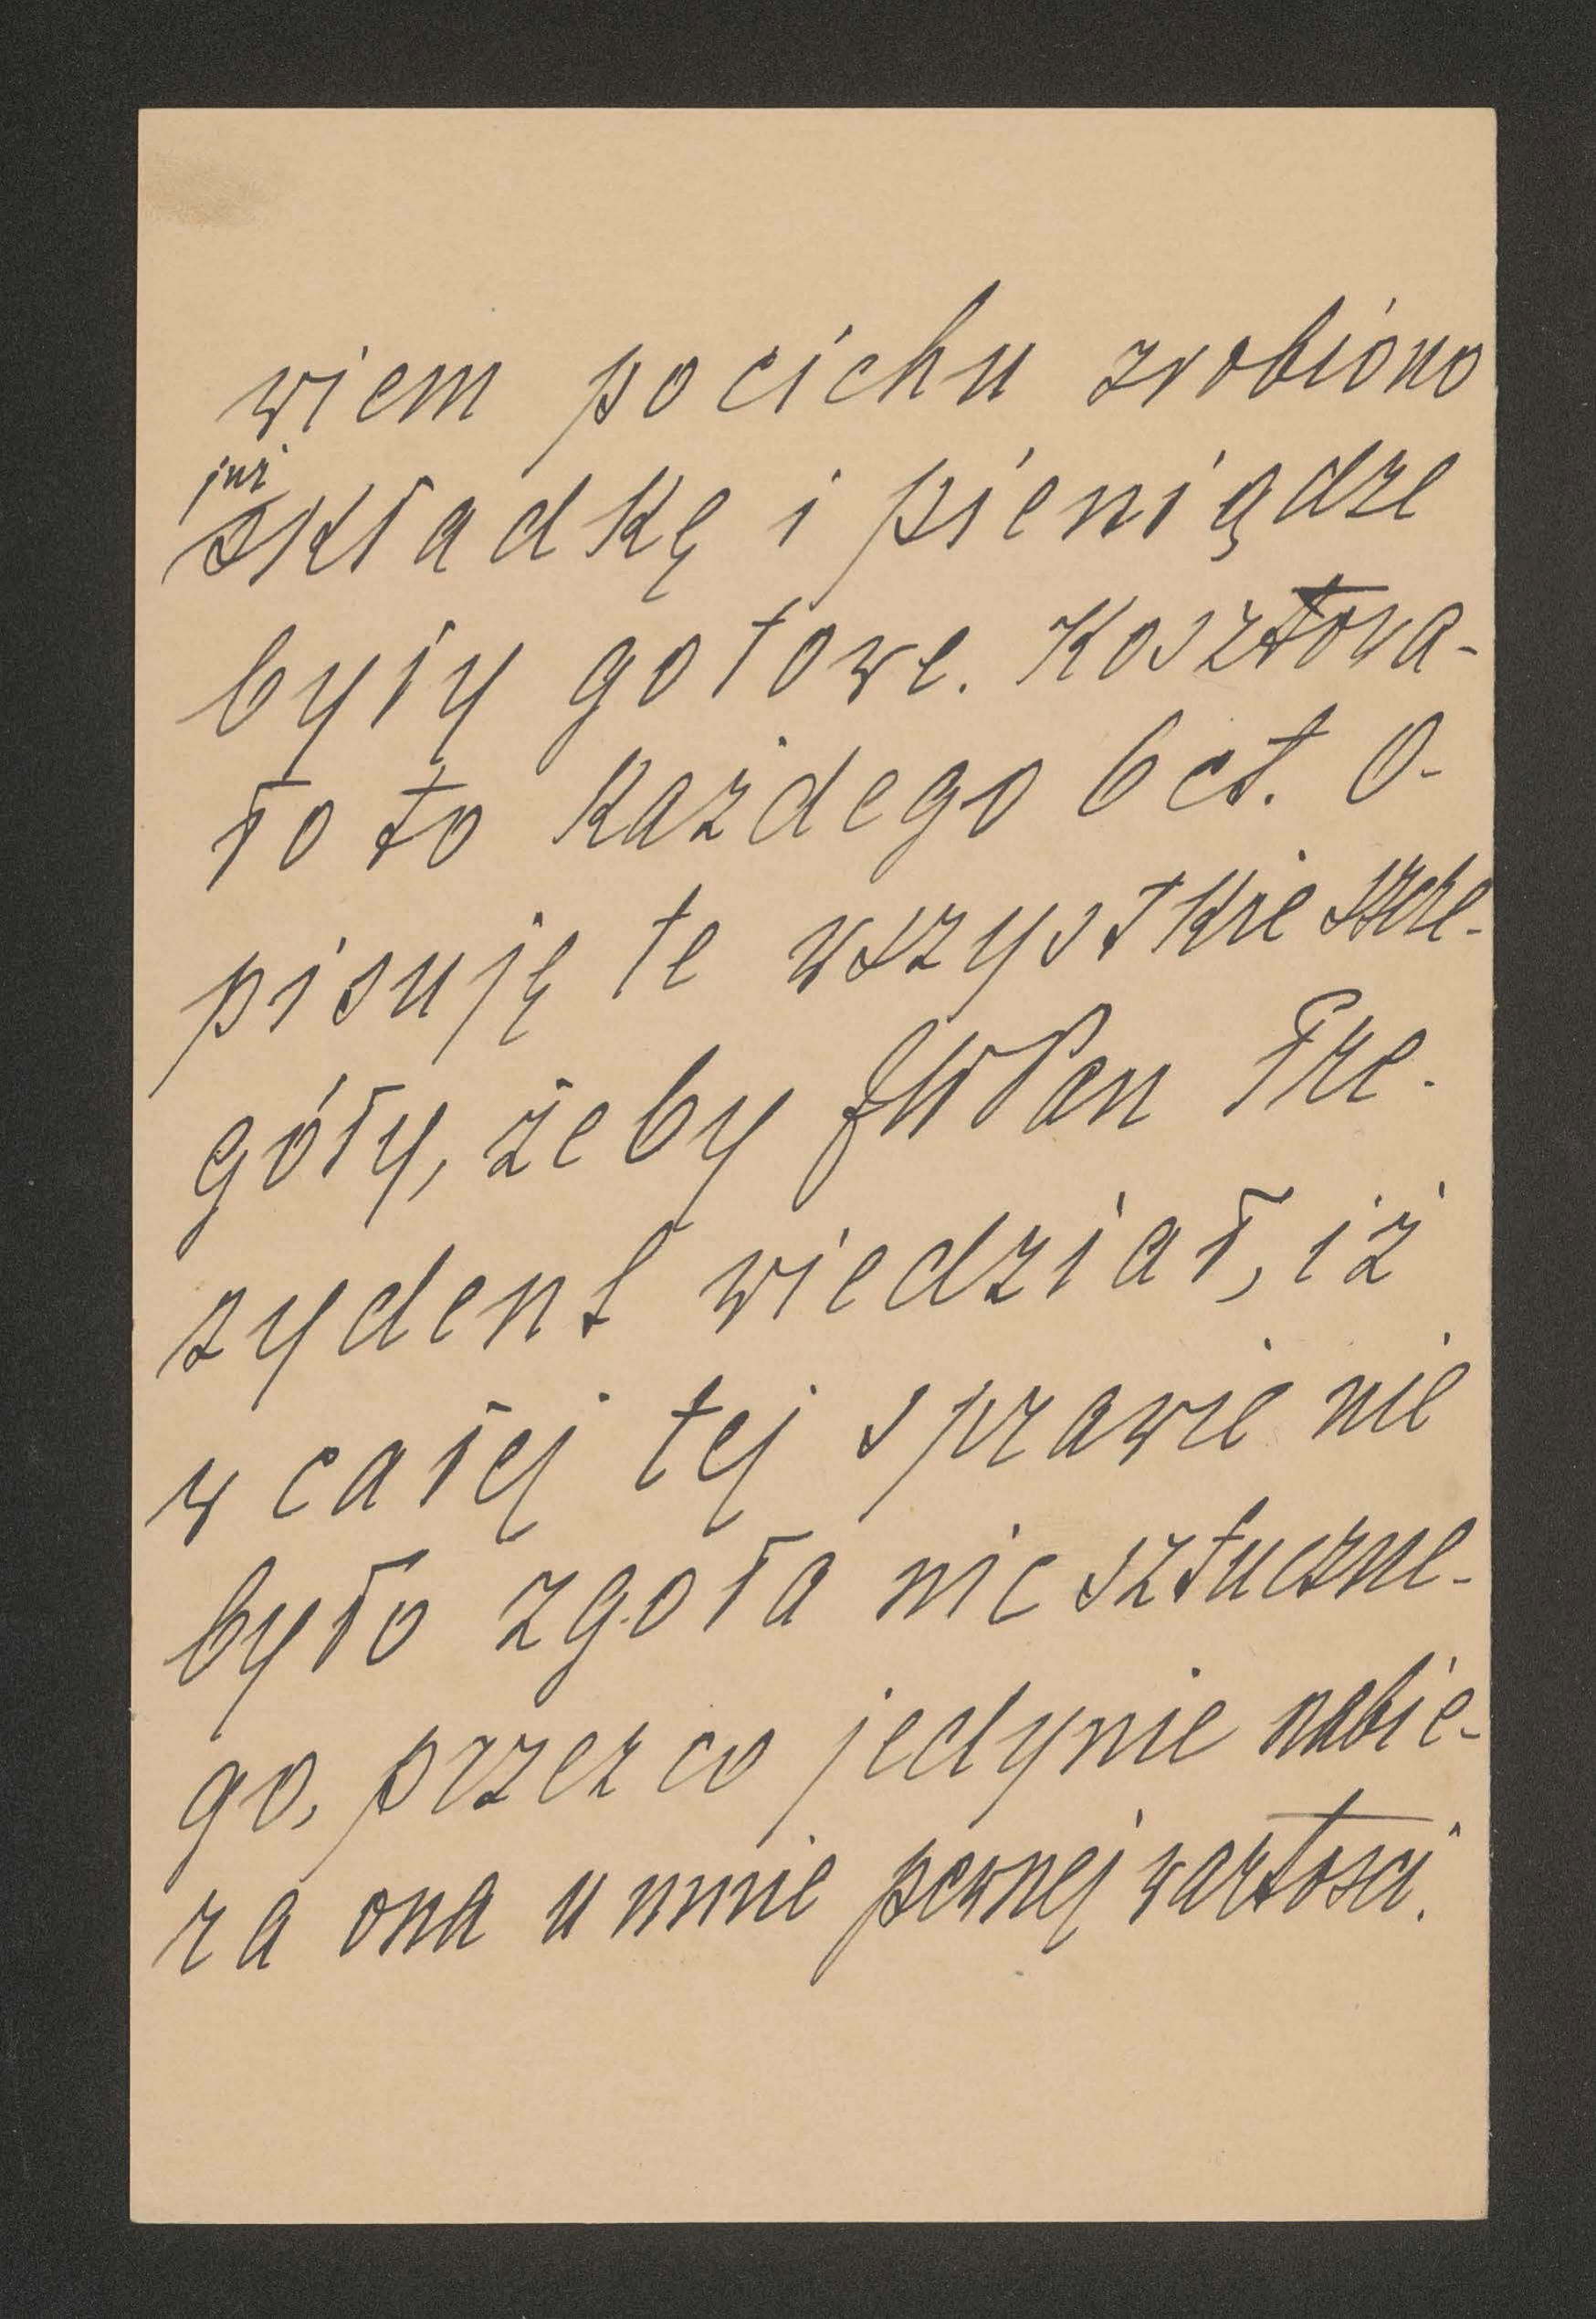 wiem pocichu zrobiono
już
składkę i pieniądze
były gotowe. Kosztowa-
ło to każdego 6 ct. O-
pisuję te wszystkie szcze-
góły, żeby JWPan Pre-
zydent wiedział, iż
w całej tej sprawie nie
było zgoła nic sztuczne-
go, przez co jedynie nabie-
ra ona u mnie pewnej wartości.